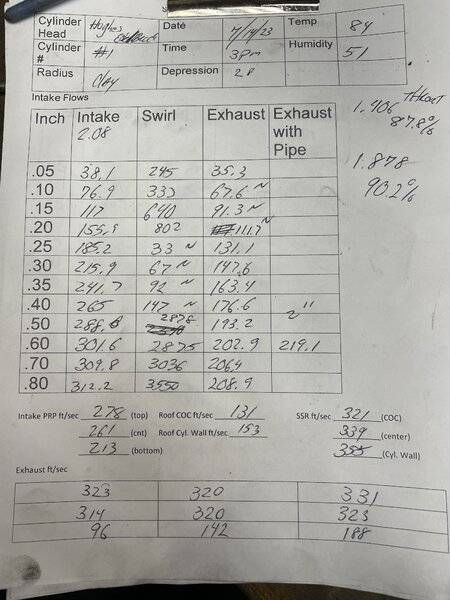 Cylinder Head Hughes Date 7/14/23 Temp 84
Cylinder # #1 Time 3pm Humidity 51
Radius Clay Depression 28
Intake Flows
Inch Intake 2.08 Swirl Exhaust Exhaust with Pipe
.05 38.1 245 35.3
.10 76.9 333 67.6 ~
.15 117 640 91.3 ~
.20 155.9 802 111.7 ~
.25 185.2 33 ~ 131.1
.30 215.9 67 ~ 147.6
.35 241.7 92 ~ 163.4
.40 265 147 ~ 176.6 2"
.50 288.6 2878 193.2
.60 301.6 2875 202.9 219.1
.70 309.8 3036 206.4
.80 312.2 3550 208.9
1.406 Throat
87.8%
1.878
90.2%
Intake PRP ft/sec 278 (top) Roof COC ft/sec 131 SSR ft/sec 321 (COC)
261 (cnt) Roof Cyl. Wall ft/sec 153 339 (center)
213 (bottom) 355 (Cyl. Wall)
Exhaust ft/sec
323 320 331
314 320 323
96 142 188